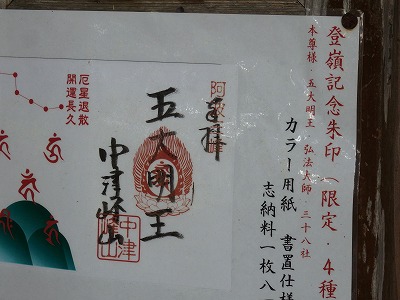 登嶺記念朱印（限定・4種
本尊様・五大明王・弘法大師・三十八社
カラー用紙　書置仕様
志納料一枚八
奉拝
五大明王
中津峰山
厄星退散
開運長久